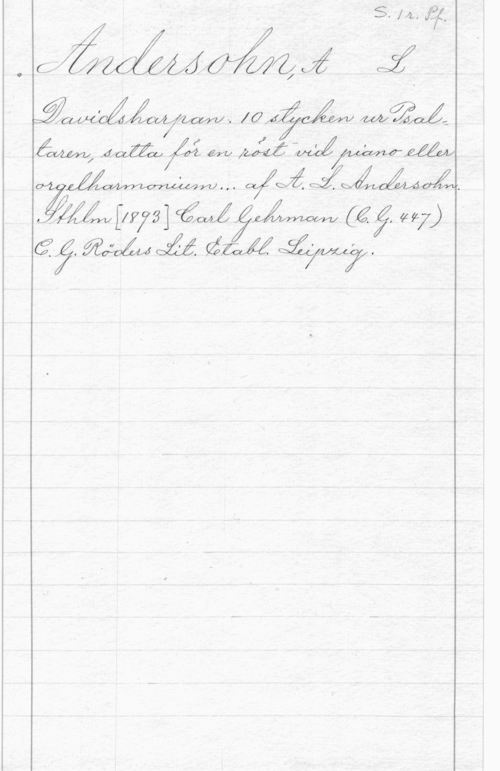 S. 1 r. Pf.
Andersohn, A L
Davidsharpan. 10 stycken ur Psal-
taren, satta för en röst vid piano eller
orgelharmonium... af A. L. Andersohn.
Sthlm [1893] Carl Gehrman (C. G. 447)
C. G. Röders Lit. Etabl. Leipzig.